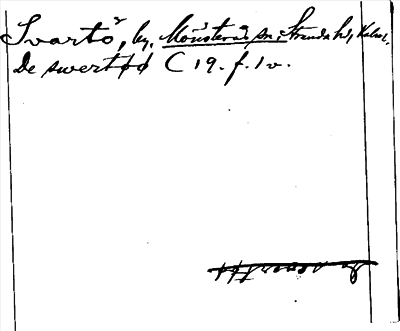 Svartö, by, Mönsterås sn, Stranda hd, Kalm l.
De swertöö C 19. f. 1v.